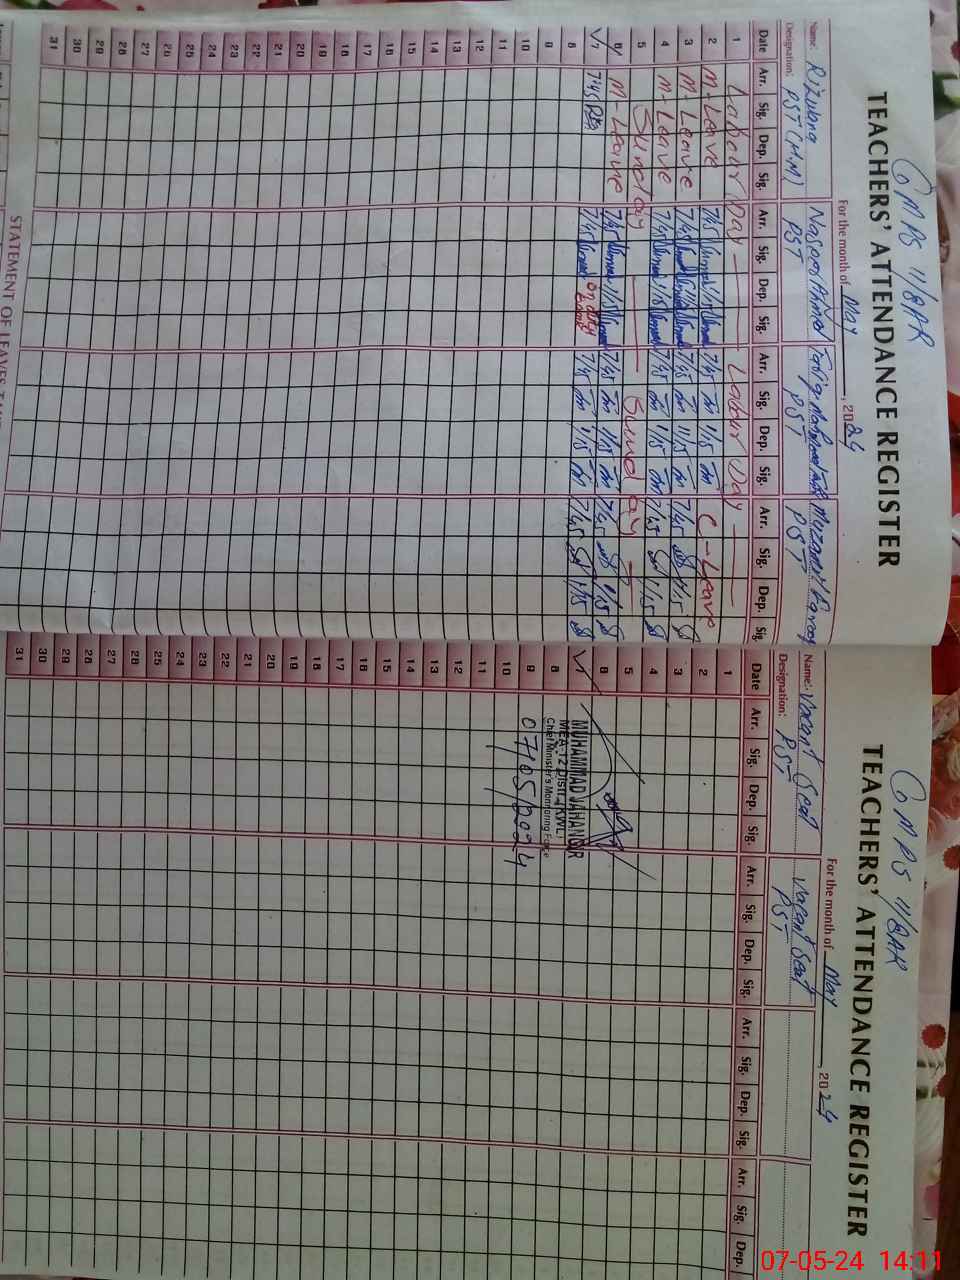 GMPS 11/8AR
TEACHERS' ATTENDANCE REGISTER
For the month of May, 2024
Name: Rizwana Naseer Ahmed Tariq Mahmood Muzamil Farooq
Designation: PST (H.M) PST PST PST
Date Arr. Sig. Dep. Sig. Arr. Sig. Dep. Sig. Arr. Sig. Dep. Sig. Arr. Sig. Dep. Sig.
1 Labour Day Labour Day
2 M-Leave 7/45 1/15 7/45 1/15 C-Leave
3 M-Leave 7/45 1/15 7/45 1/15 7/45 1/15
4 M-Leave 7/45 1/15 7/45 1/15 7/45 1/15
5 Sunday Sunday
6 M-Leave 7/45 1/15 7/45 1/15 7/45 1/15
7 7/45 7/45 on duty 7/45 1/15 7/45 1/15
8
9
10
11
12
13
14
15
16
17
18
19
20
21
22
23
24
25
26
27
28
29
30
31
STATEMENT OF LEAVES
GMPS 11/8AR
TEACHERS' ATTENDANCE REGISTER
For the month of May, 2024
Name: Vacant Seat Vacant Seat
Designation: PST PST
Date Arr. Sig. Dep. Sig. Arr. Sig. Dep. Sig. Arr. Sig. Dep. Sig. Arr. Sig. Dep.
1
2
3
4
5
6
7
8
9
10
11
12
13
14
15
16
17
18
19
20
21
22
23
24
25
26
27
28
29
30
31
MUHAMMAD JAHANGIR
MEA-12 Distt. (KWL)
Chief Minister's Monitoring Force
07/05/2024
07-05-24 14:11